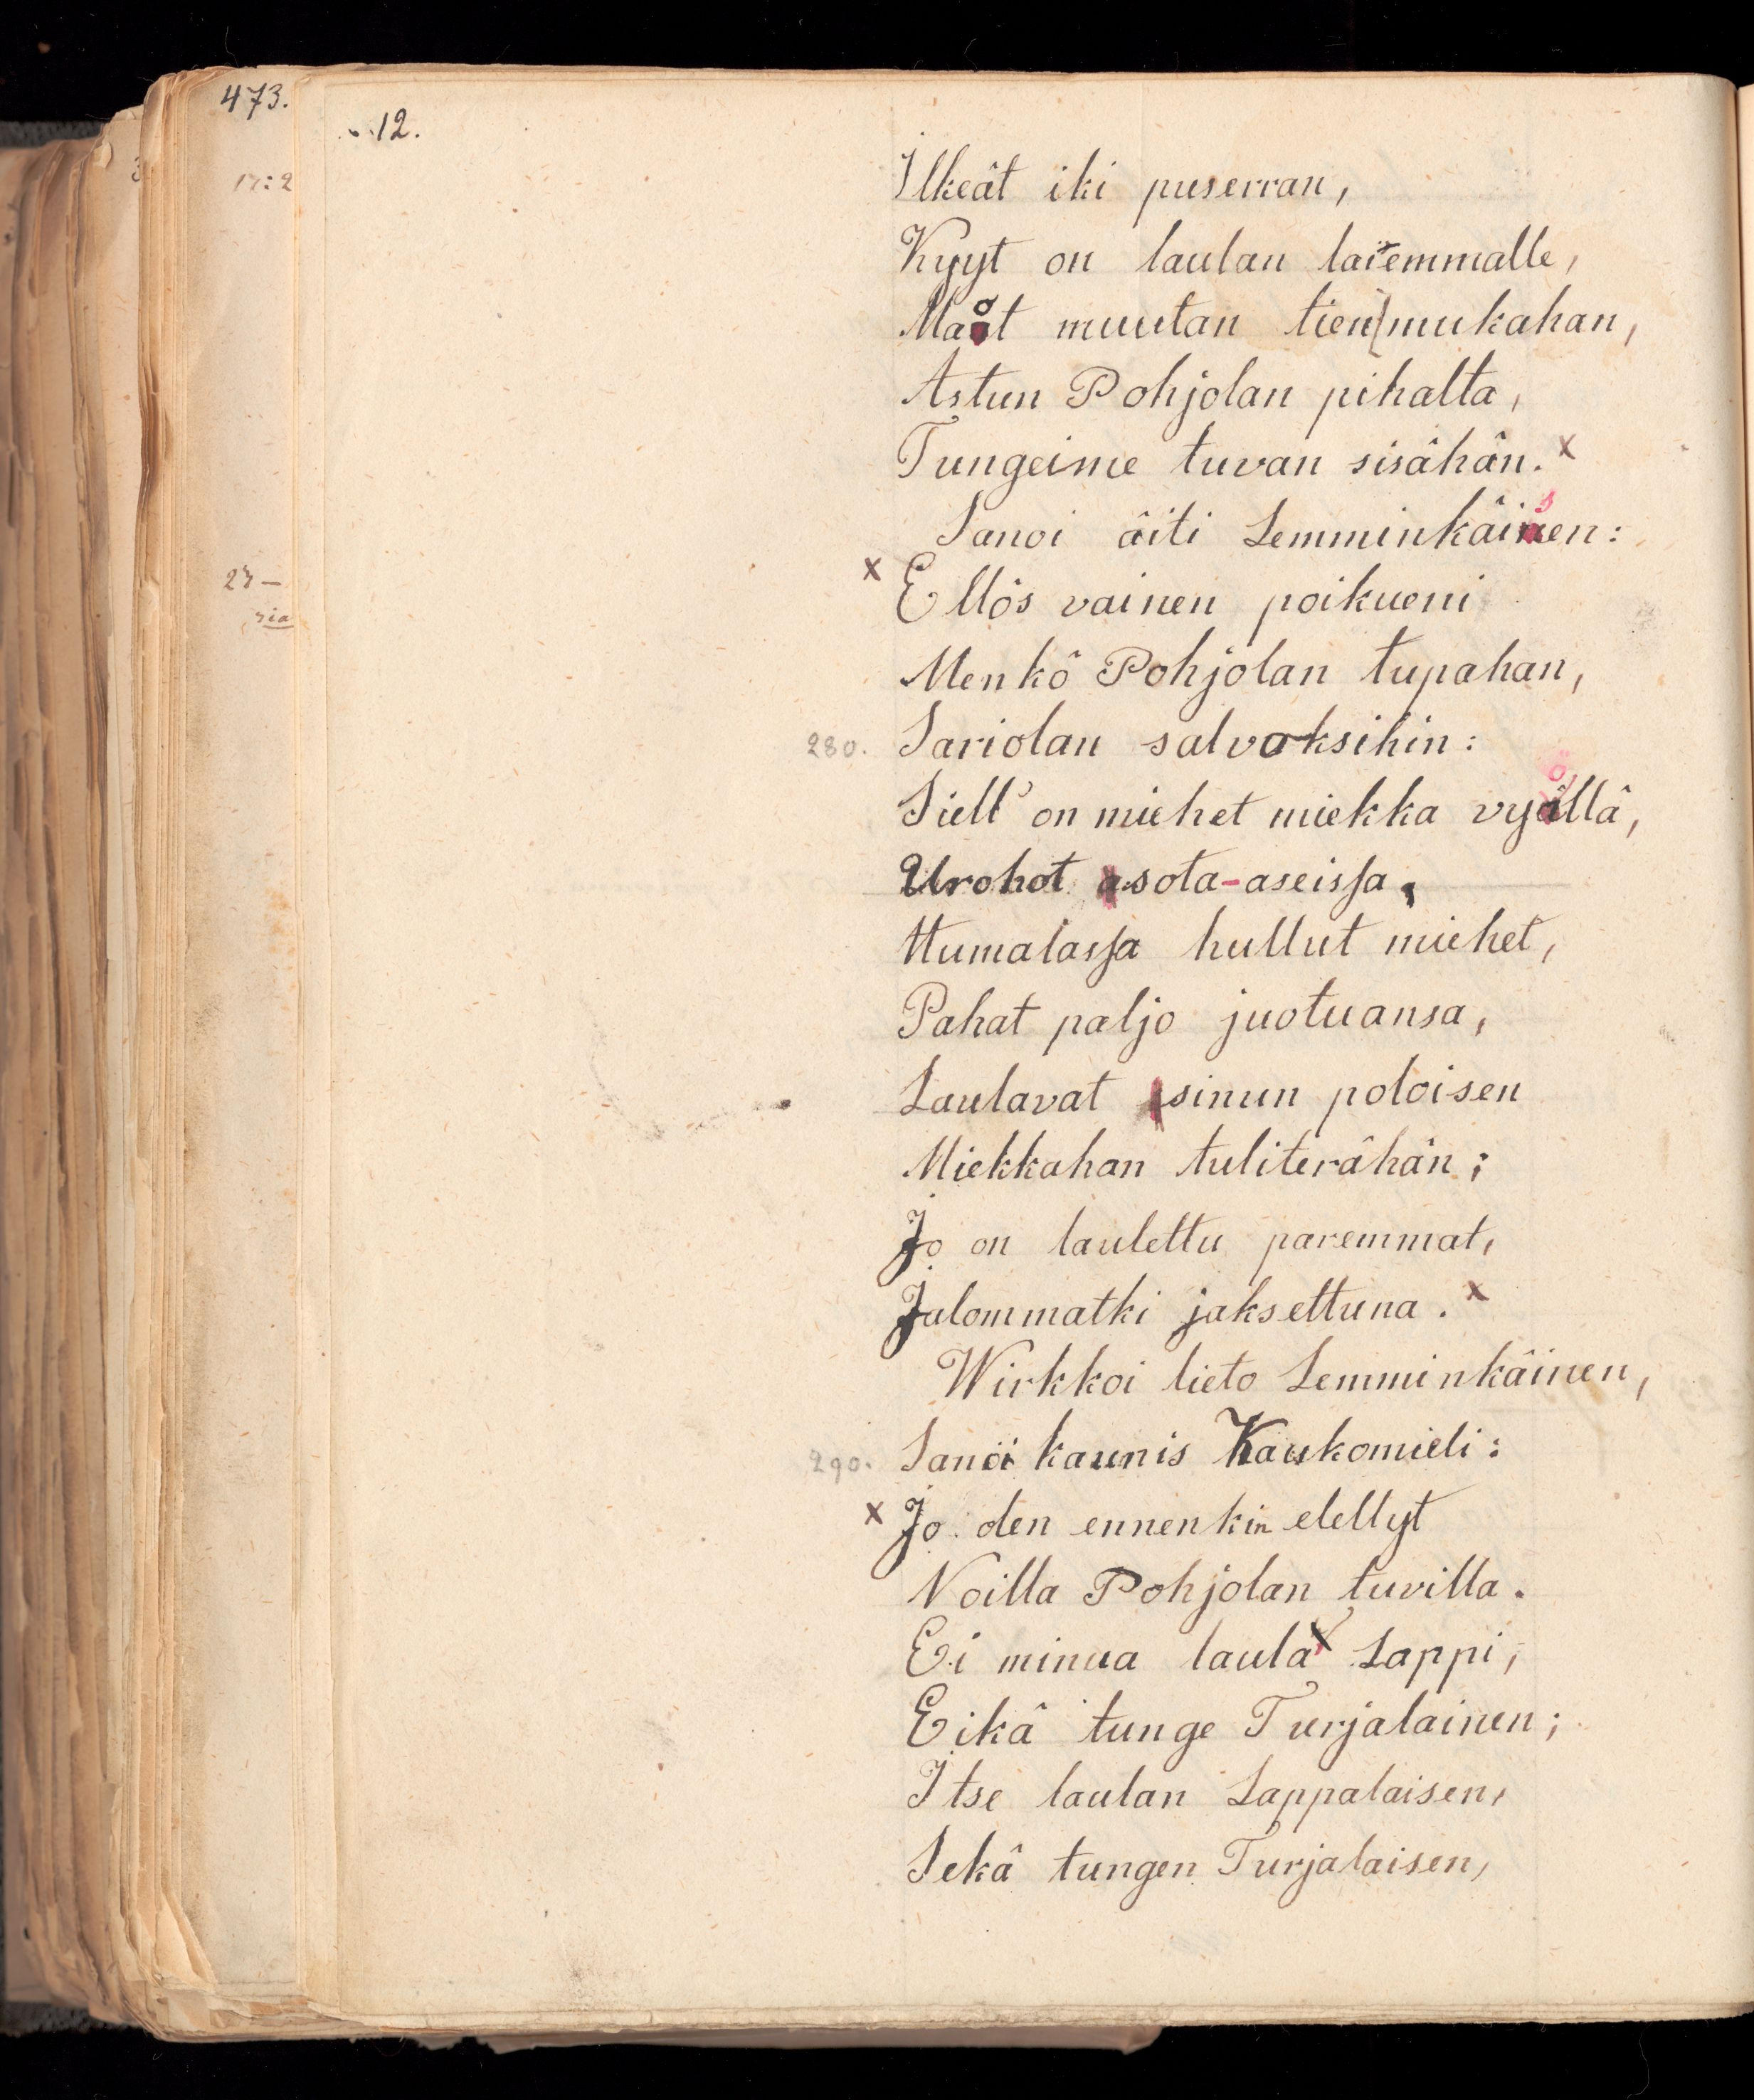 473.
12.
17:2
Ilkeât iki puserran,
Kyyt on laulan laremmalle,
Maot muutan tien mukahan,
Astun Pohjolan pihalta,
Tungeime tuvan sisâhân. x
Sanoi âiti Lemminkâisen:
23 —
x Ellôs vainen poikueni
Menkô Pohjolan tupahan,
280. Sariolan salvoksihin:
Siell' on miehet miekka vyöllâ,
Urohot sota-aseissa,
Humalassa hullut miehet,
Pahat paljo juotuansa,
Laulavat sinun poloisen
Miekkahan tuliterâhân;
Jo on laulettu paremmat,
Jalommatki jaksettuna. x
Wirkkoi lieto Lemminkâinen,
290. Sanoi kaunis Kaukomieli:
x Jo olen ennenkin elellyt
Noilla Pohjolan tuvilla.
Ei minua laula Lappi,
Eikâ tunge Turjalainen;
Itse laulan Lappalaisen,
Sekâ tungen Turjalaisen,